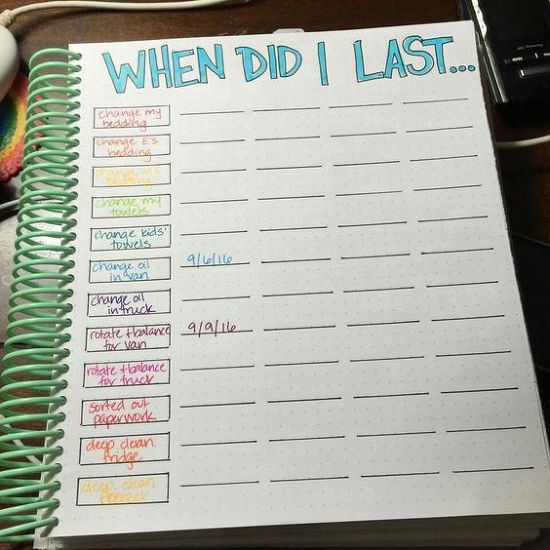 WHEN DID I LAST...
change my
bedding
change E's
bedding
change M's
bedding
change my
towels
change kids'
towels
change oil
in van
9/6/16
change oil
in truck
rotate + balance
for van
9/9/16
rotate + balance
for truck
sorted out
paperwork
deep clean
fridge
deep clean
freezer